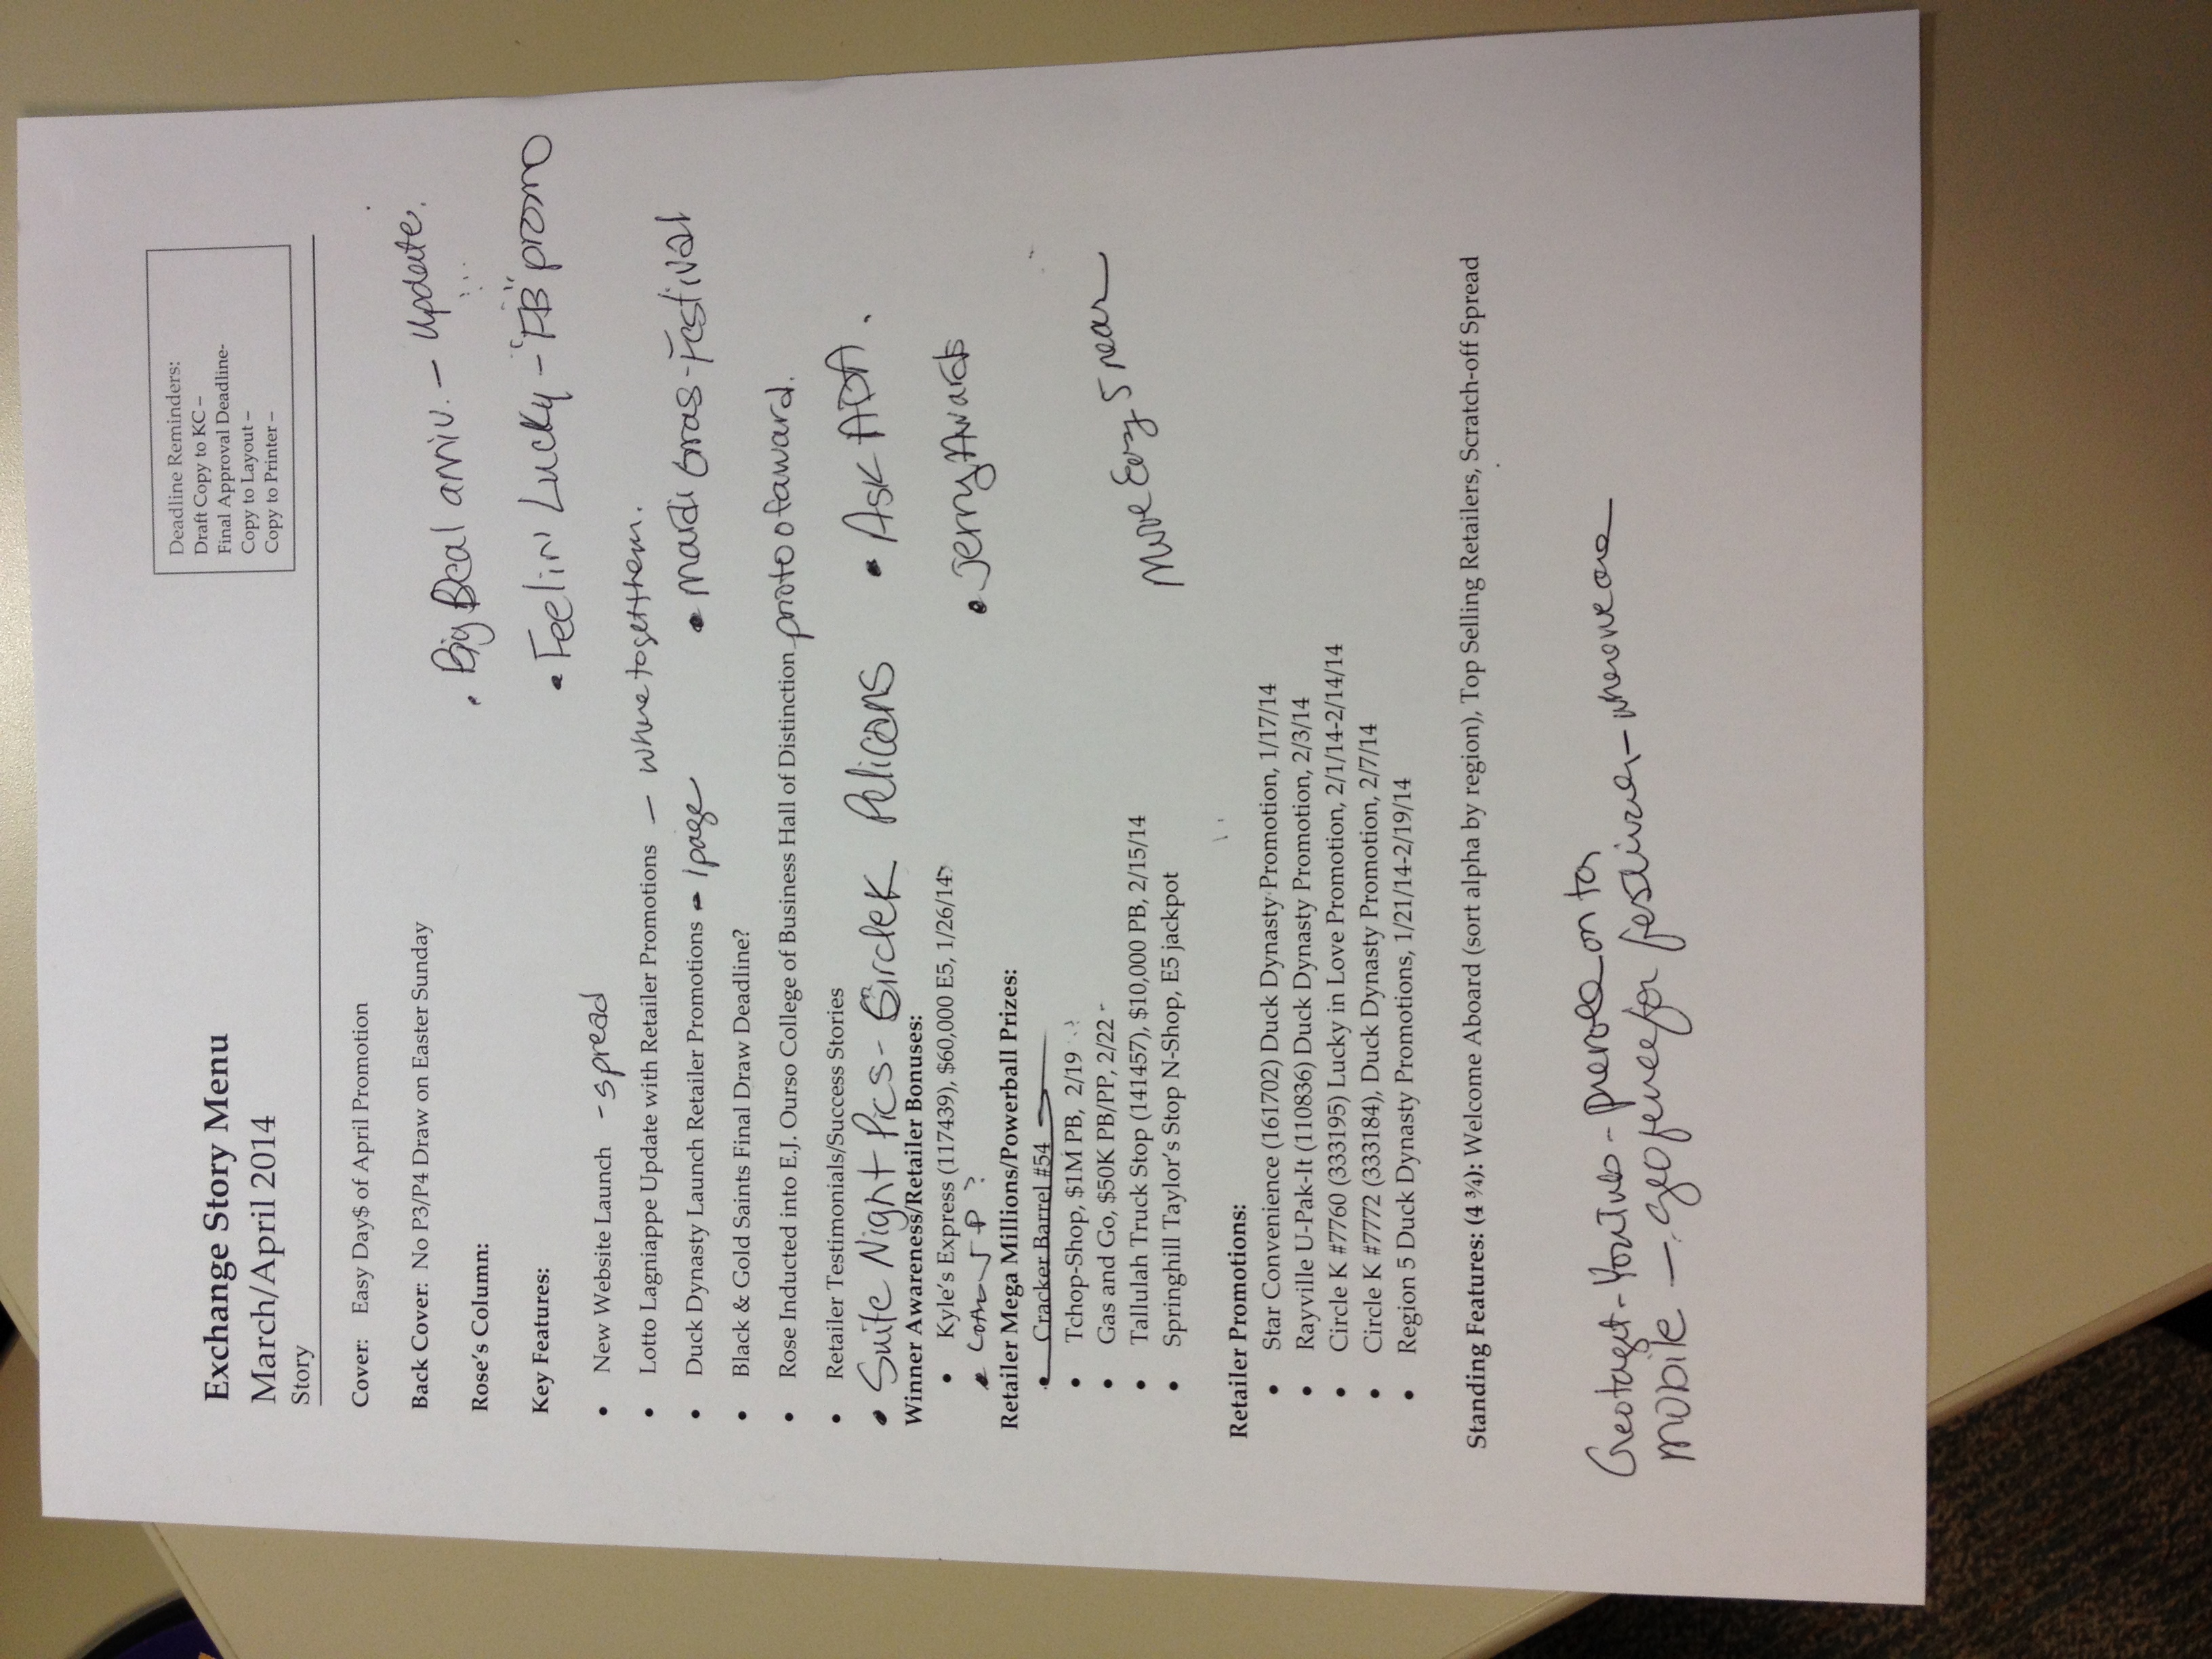 Exchange Story Menu
March/April 2014
Story
Deadline Reminders:
Draft Copy to KC –
Final Approval Deadline-
Copy to Layout –
Copy to Printer –
Cover: Easy Day$ of April Promotion
Back Cover: No P3/P4 Draw on Easter Sunday
• Big Deal – update.
Rose's Column:
Key Features:
• Feelin Lucky – "FB" promo
• New Website Launch - spread
• Lotto Lagniappe Update with Retailer Promotions – where to get them.
• Duck Dynasty Launch Retailer Promotions – 1 page
• Mardi Gras - Festival
• Black & Gold Saints Final Draw Deadline?
• Rose Inducted into E.J. Ourso College of Business Hall of Distinction photo of award.
• Retailer Testimonials/Success Stories
• Ask ADA.
• Suite Night Pics - Circle K Pelicans
Winner Awareness/Retailer Bonuses:
• Kyle's Express (117439), $60,000 E5, 1/26/14
• Jerry Awards
Retailer Mega Millions/Powerball Prizes:
• Cracker Barrel #54
• Tchop-Shop, $1M PB, 2/19
• Gas and Go, $50K PB/PP, 2/22
• Tallulah Truck Stop (141457), $10,000 PB, 2/15/14
• Springhill Taylor's Stop N-Shop, E5 jackpot
More Easy 5 near
Retailer Promotions:
• Star Convenience (161702) Duck Dynasty Promotion, 1/17/14
• Rayville U-Pak-It (110836) Duck Dynasty Promotion, 2/3/14
• Circle K #7760 (333195) Lucky in Love Promotion, 2/1/14-2/14/14
• Circle K #7772 (333184), Duck Dynasty Promotion, 2/7/14
• Region 5 Duck Dynasty Promotions, 1/21/14-2/19/14
Standing Features: (4 ¾): Welcome Aboard (sort alpha by region), Top Selling Retailers, Scratch-off Spread
Geotarget - YouTube - preroll on
mobile – geofence for festival – where